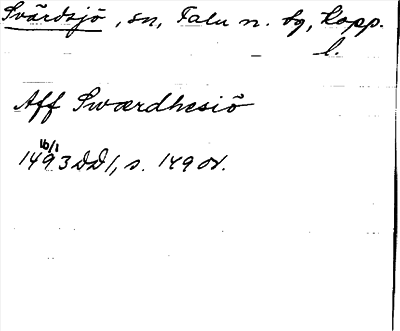 Svärdsjö, sn, Falu n. bg, Kopp.
l.
Aff Swærdhesiö
16/1
1493 DD 1, s. 149 or.